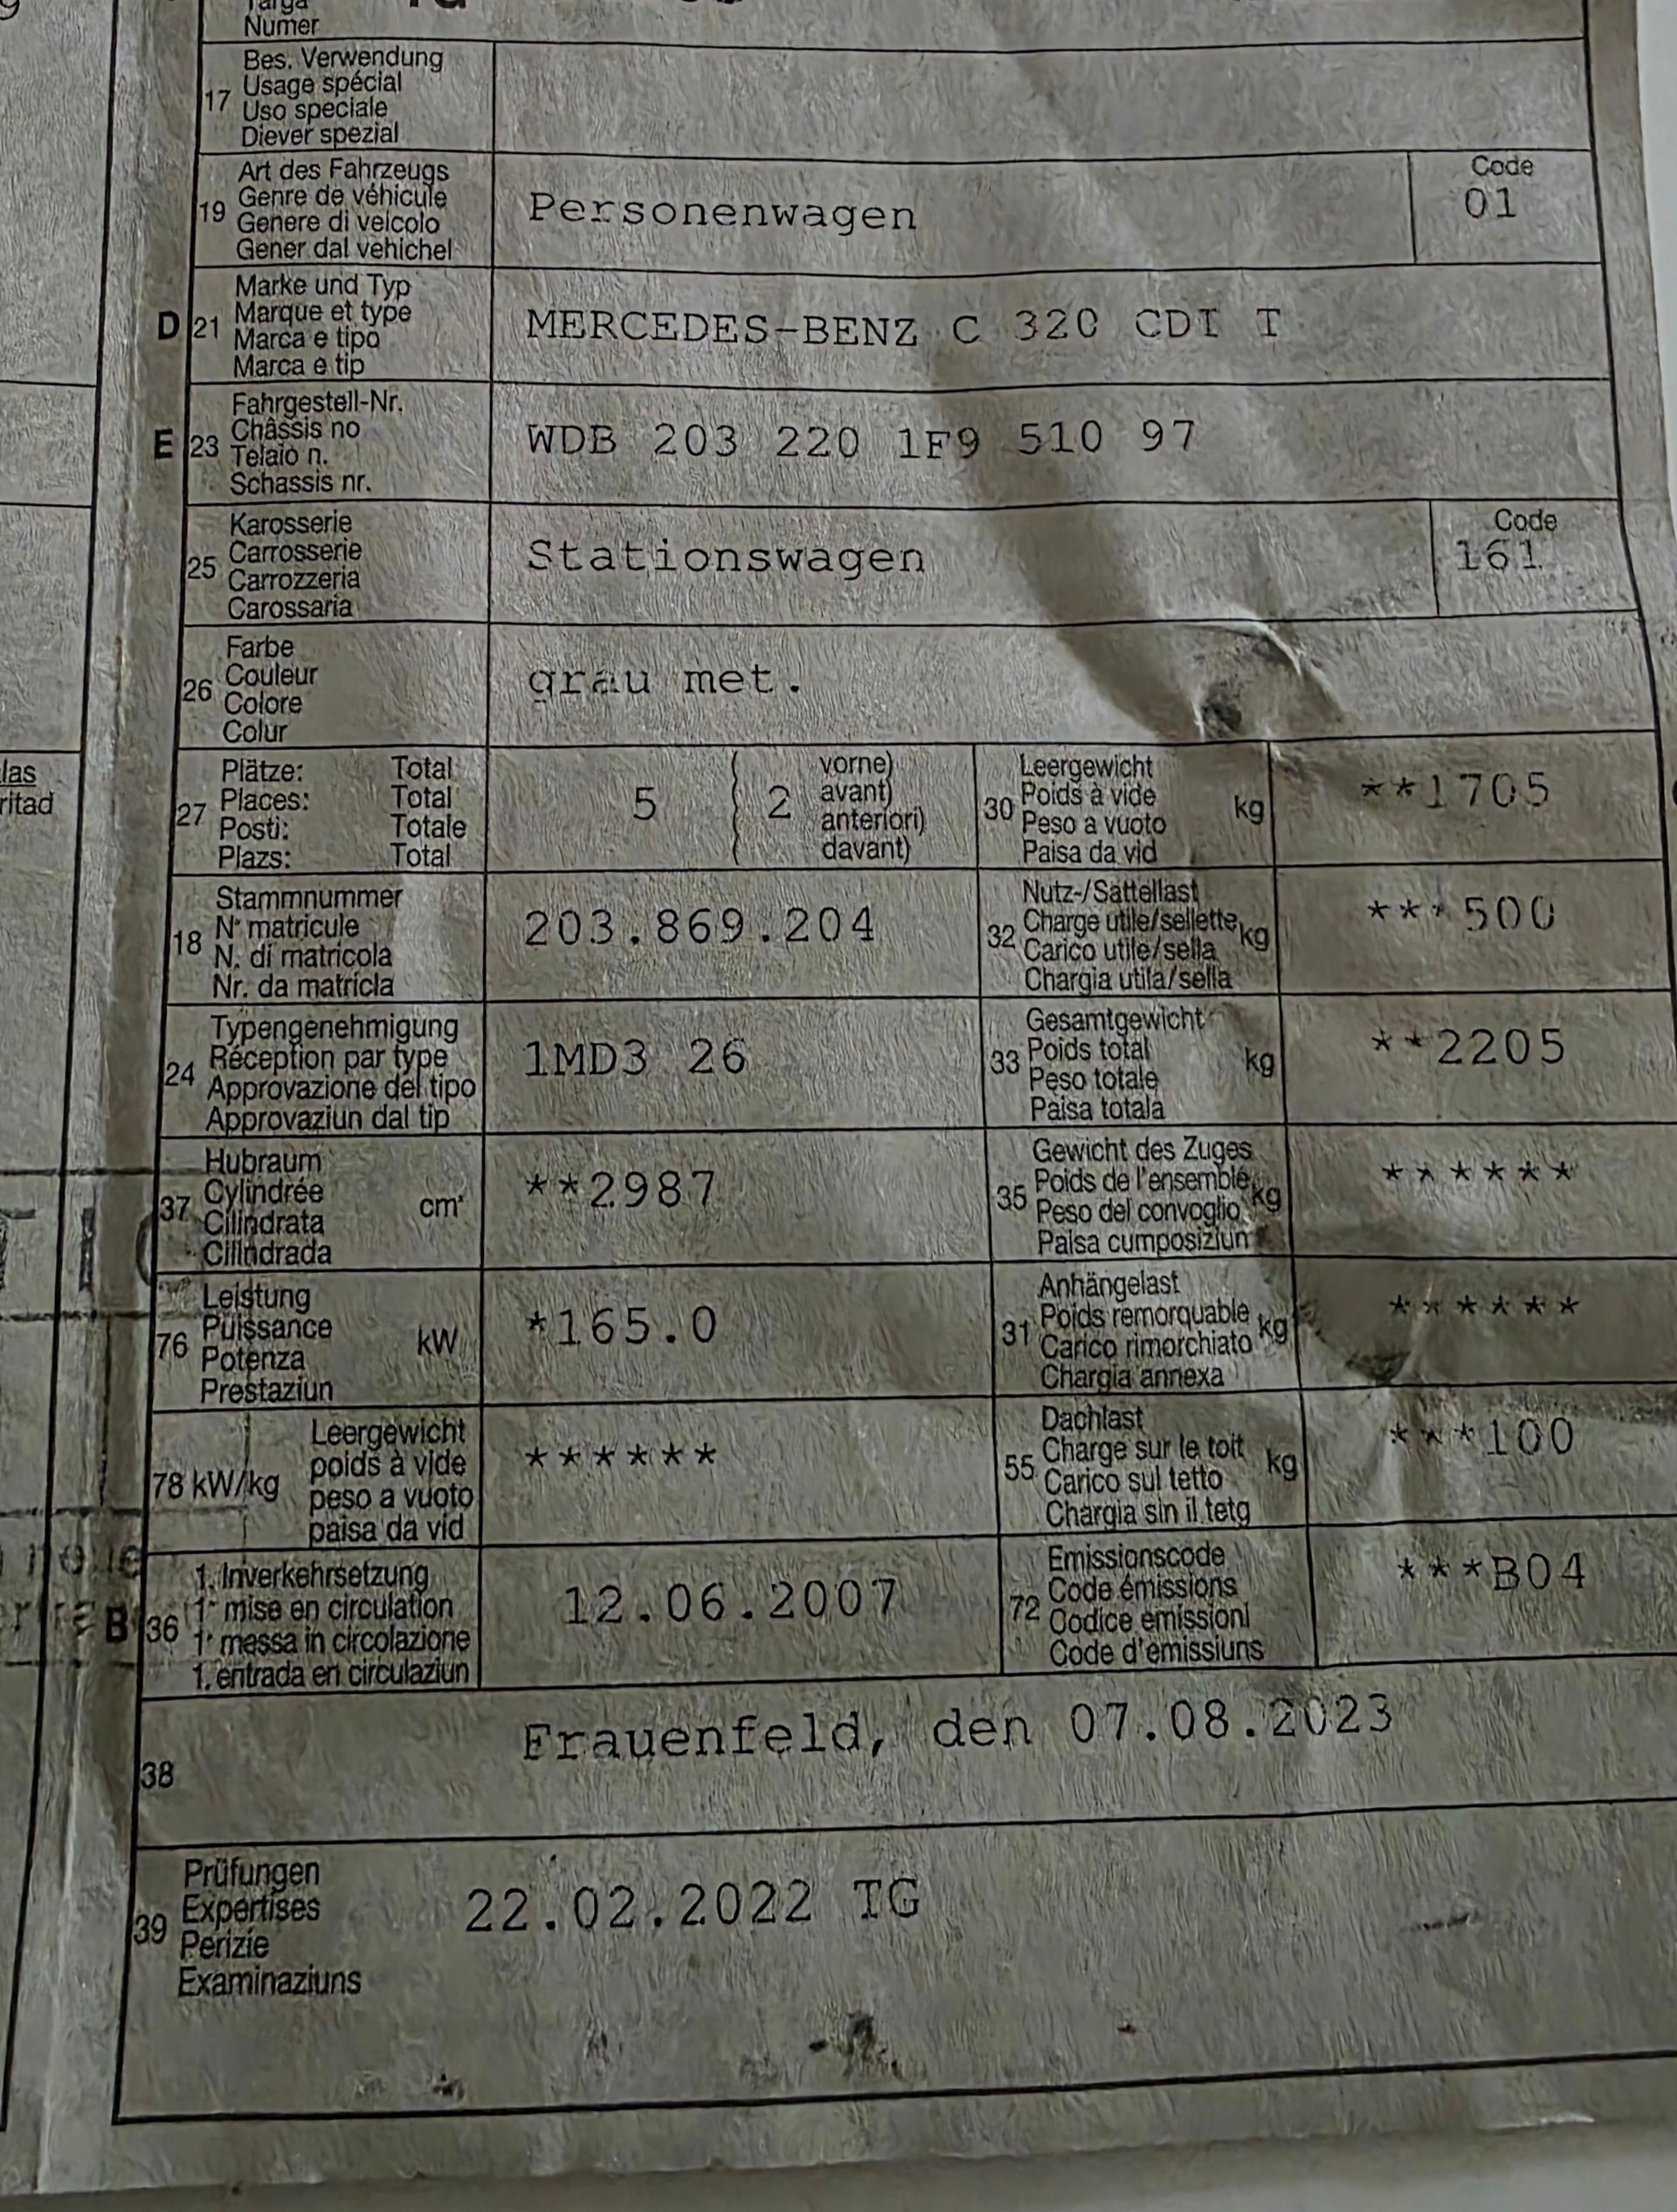 Targa
Numer
17 Bes. Verwendung
Usage spécial
Uso speciale
Diever spezial
19 Art des Fahrzeugs
Genre de véhicule
Genere di veicolo
Gener dal vehichel
Personenwagen
Code
01
D 21 Marke und Typ
Marque et type
Marca e tipo
Marca e tip
MERCEDES-BENZ C 320 CDI T
E 23 Fahrgestell-Nr.
Châssis no
Telaio n.
Schassis nr.
WDB 203 220 1F9 510 97
25 Karosserie
Carrosserie
Carrozzeria
Carossaria
Stationswagen
Code
161
26 Farbe
Couleur
Colore
Colur
grau met.
27 Plätze: Total
Places: Total
Posti: Totale
Plazs: Total
5 ( 2 vorne)
avant)
anteriori)
davant)
30 Leergewicht
Poids à vide
Peso a vuoto
Paisa da vid
kg
**1705
18 Stammnummer
N° matricule
N. di matricola
Nr. da matricla
203.869.204
32 Nutz-/Sattellast
Charge utile/sellette
Carico utile/sella
Chargia utila/sella
kg
***500
24 Typengenehmigung
Réception par type
Approvazione del tipo
Approvaziun dal tip
1MD3 26
33 Gesamtgewicht
Poids total
Peso totale
Paisa totala
kg
**2205
37 Hubraum
Cylindrée
Cilindrata
Cilindrada
cm³
**2987
35 Gewicht des Zuges
Poids de l'ensemble
Peso del convoglio
Paisa cumposiziun
kg
******
76 Leistung
Puissance
Potenza
Prestaziun
kW
*165.0
31 Anhängelast
Poids remorquable
Carico rimorchiato
Chargia annexa
kg
******
78 kW/kg Leergewicht
poids à vide
peso a vuoto
paisa da vid
******
55 Dachlast
Charge sur le toit
Carico sul tetto
Chargia sin il tetg
kg
***100
B 36 1. Inverkehrsetzung
1re mise en circulation
1a messa in circolazione
1. entrada en circulaziun
12.06.2007
72 Emissionscode
Code émissions
Codice emissioni
Code d'emissiuns
***B04
38
Frauenfeld, den 07.08.2023
39 Prüfungen
Expertises
Perizie
Examinaziuns
22.02.2022 TG
las
ritad